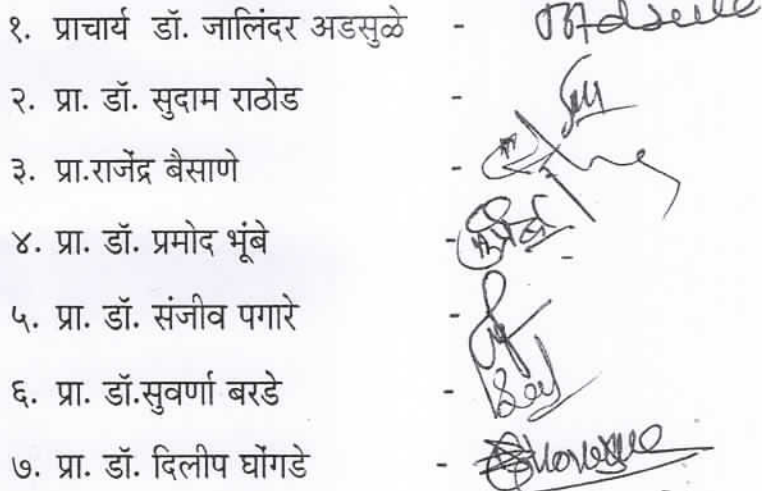 १. प्राचार्य डॉ. जालिंदर अडसुळे -
२. प्रा. डॉ. सुदाम राठोड -
३. प्रा.राजेंद्र बैसाणे -
४. प्रा. डॉ. प्रमोद भूंबे -
५. प्रा. डॉ. संजीव पगारे -
६. प्रा. डॉ.सुवर्णा बरडे -
७. प्रा. डॉ. दिलीप घोंगडे -